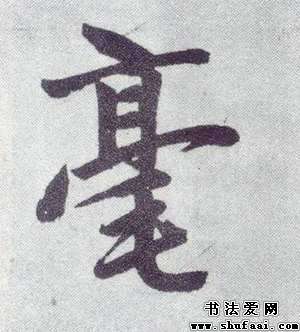 毫
书法爱网
www.shufaai.com